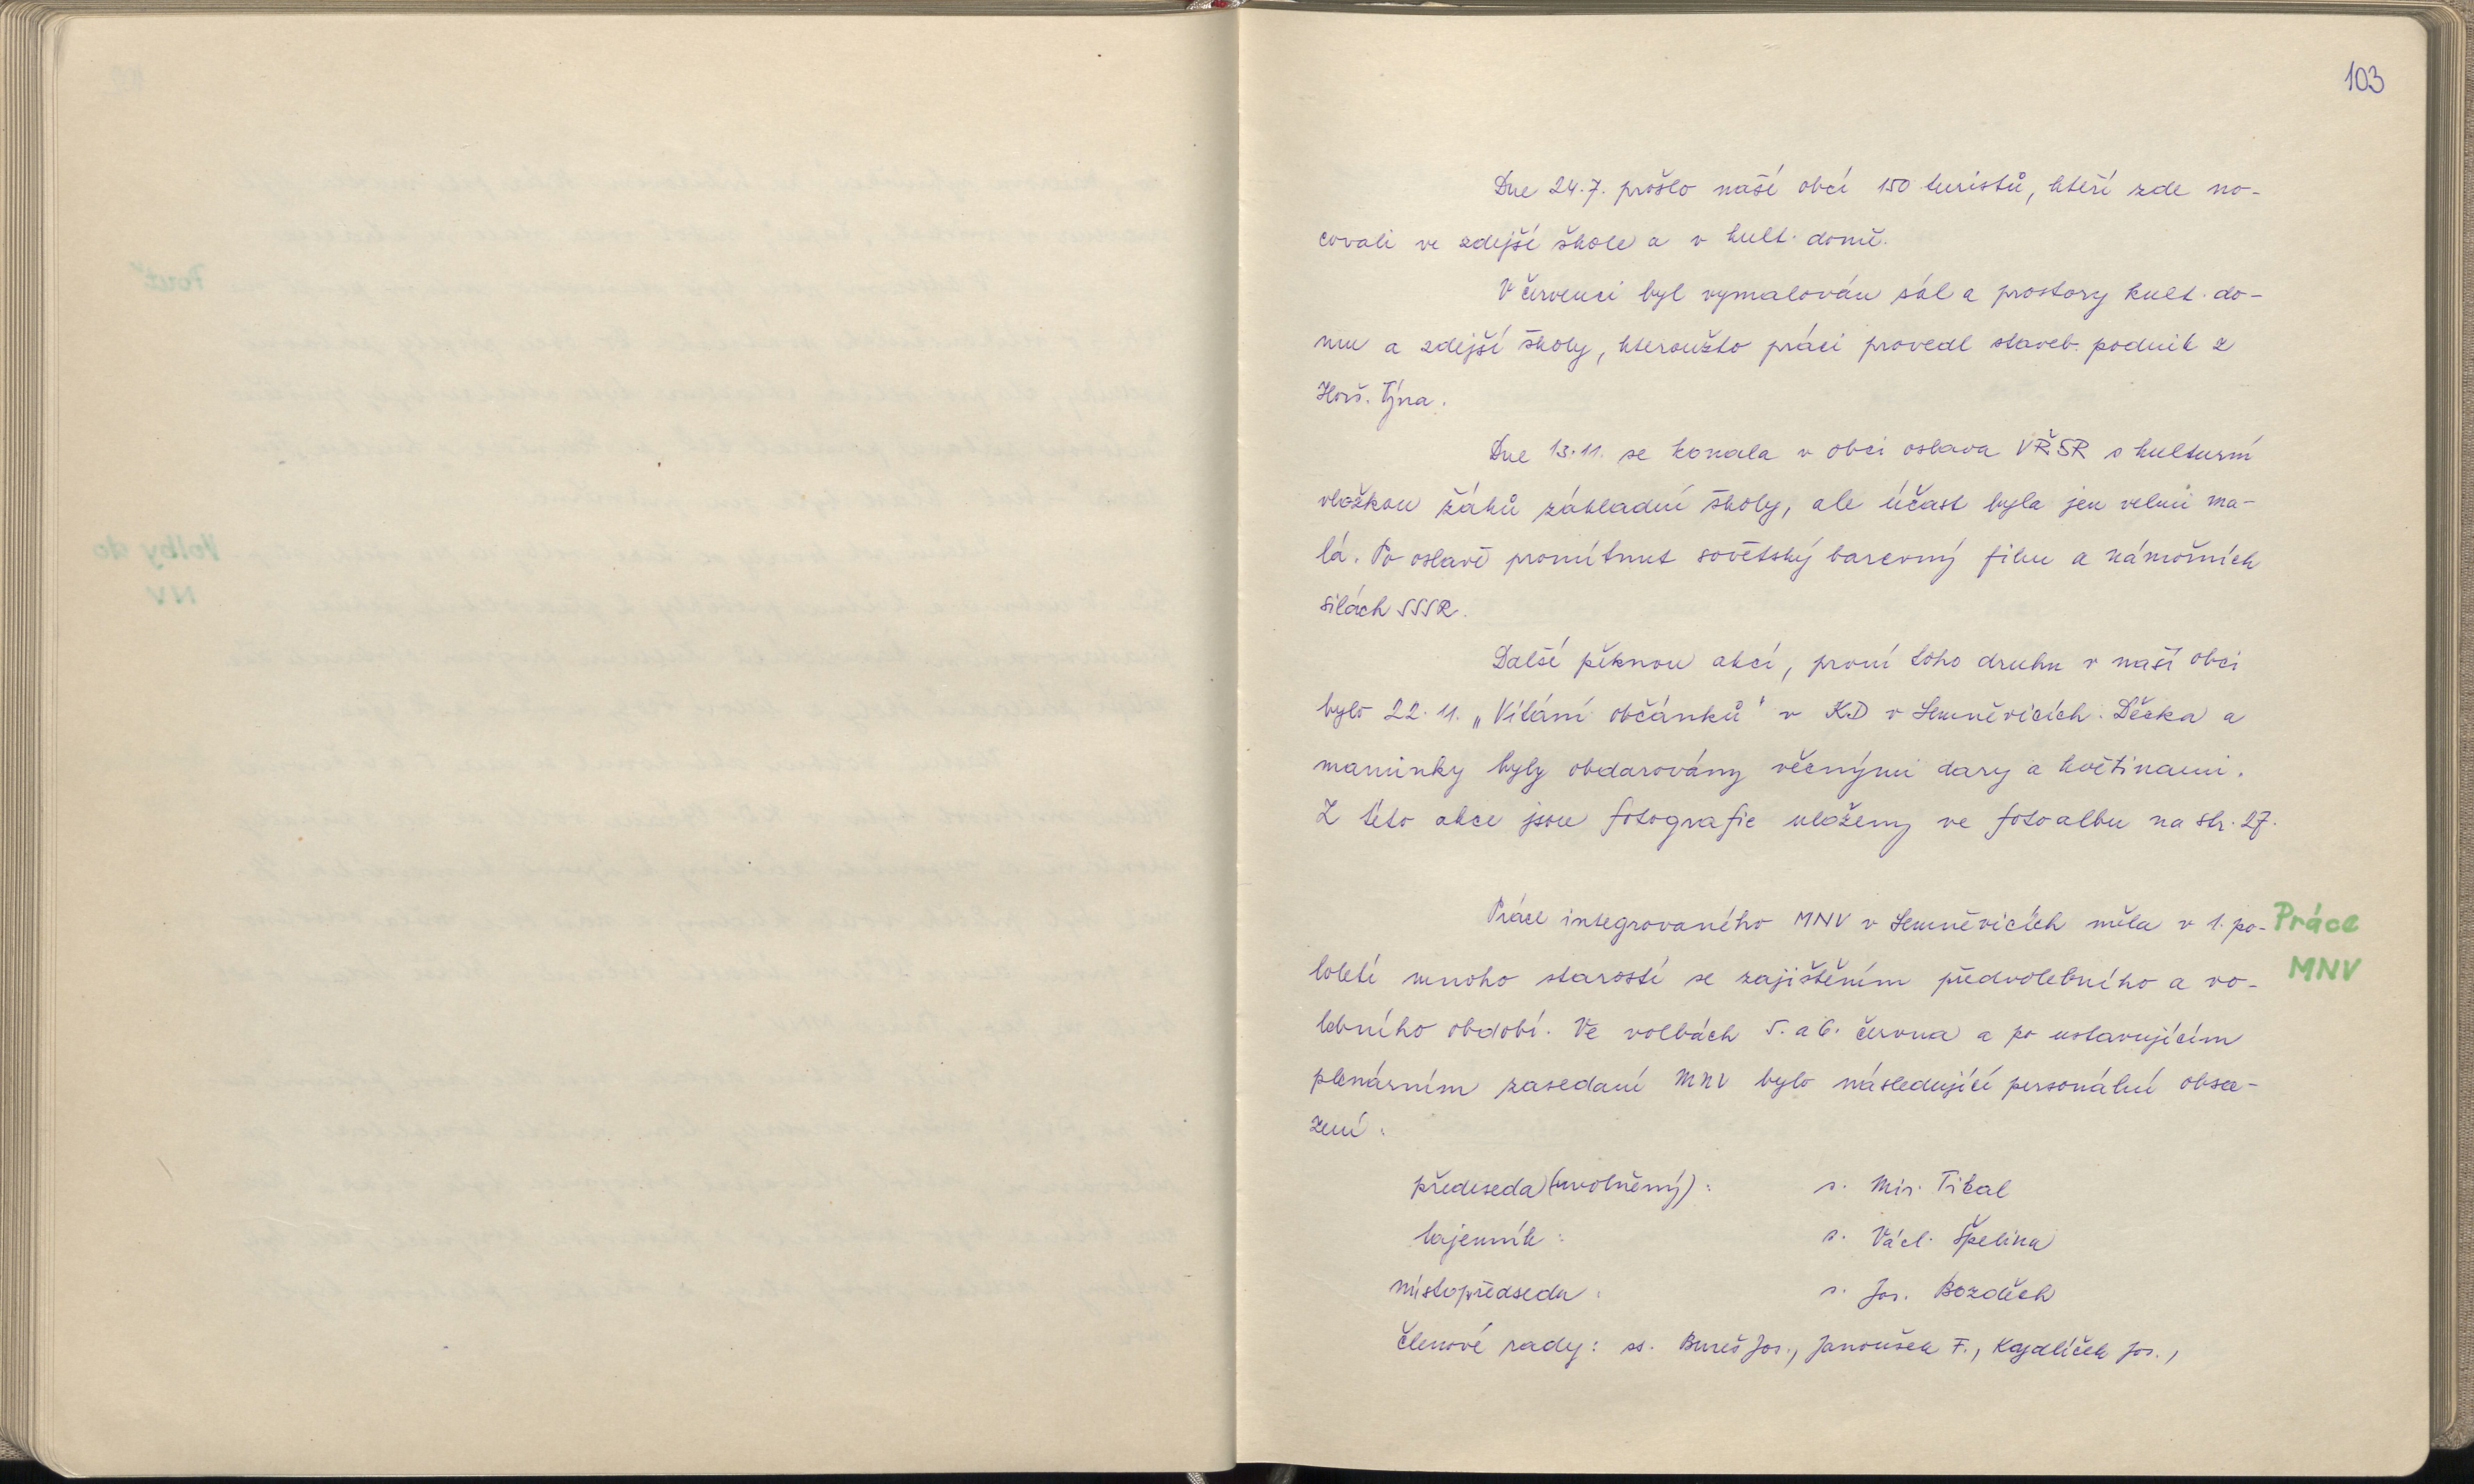 103
Dne 24.7. prošlo naší obcí 150 turistů, kteří zde no-
covali ve zdejší škole a v kult. domě.
V červenci byl vymalován sál a prostory kult. do-
mu a zdejší školy, kteroužto práci provedl staveb. podnik z
Horš. Týna.
Dne 13.11. se konala v obci oslava VŘSR s kulturní
vložkou žáků základní školy, ale účast byla jen velmi ma-
lá. Po oslavě promítnut sovětský barevný film a námořních
silách SSSR.
Další pěknou akcí, první toho druhu v naší obci
bylo 22.11. „Vítání občánků" v KD v Semněvicích. Děcka a
maminky byly obdarovány věcnými dary a květinami.
Z této akce jsou fotografie uloženy ve fotoalbu na str. 27.
Práce integrovaného MNV v Semněvicích měla v 1. po-
loletí mnoho starostí se zajištěním předvolebního a vo-
lebního období. Ve volbách 5. a 6. června a po ustavujícím
plenárním zasedaní MNV bylo následující personální obsa-
zení:
Práce
MNV
předseda (uvolněný): s. Mir. Tikal
tajemník: s. Václ. Špelina
místopředseda: s. Jos. Bozděch
členové rady: ss. Bureš Jos., Janoušek F., Kajdlíček Jos.,